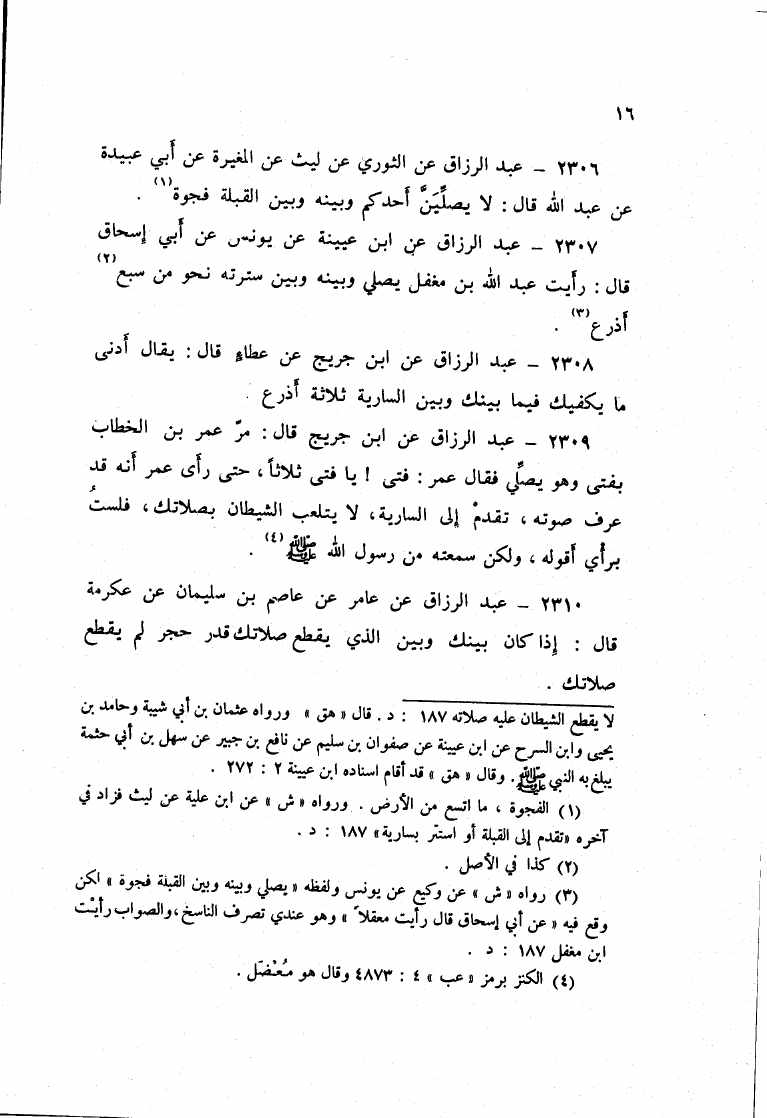 ١٦
٢٣٠٦ – عبد الرزاق عن الثوري عن ليث عن المغيرة عن أَبي عبيدة
عن عبد الله قال : لا يصلِّيَنَّ أحدكم وبينه وبين القبلة فجوة(١) .
٢٣٠٧ – عبد الرزاق عن ابن عيينة عن يونس عن أَبي إسحاق
قال : رأَيت عبد الله بن مغفل يصلي وبينه وبين سترته نحو من سبع(٢)
أَذرع(٣) .
٢٣٠٨ – عبد الرزاق عن ابن جريج عن عطاءٍ قال : يقال أَدنى
ما يكفيك فيما بينك وبين السارية ثلاثة أَذرع .
٢٣٠٩ – عبد الرزاق عن ابن جريج قال : مرّ عمر بن الخطاب
بفتى وهو يصلِّي فقال عمر : فتى ! يا فتى ثلاثاً ، حتى رأَى عمر أَنه قد
عرف صوته ، تقدمْ إلى السارية ، لا يتلعب الشيطان بصلاتك ، فلستُ
برأْي أَقوله ، ولكن سمعته من رسول الله ﷺ(٤) .
٢٣١٠ – عبد الرزاق عن عامر عن عاصم بن سليمان عن عكرمة
قال : إذا كان بينك وبين الذي يقطع صلاتك قدر حجر لم يقطع
صلاتك .
لا يقطع الشيطان عليه صلاته ١٨٧ : د . قال « هق » ورواه عثمان بن أبي شيبة وحامد بن
يحيى وابن السرح عن ابن عيينة عن صفوان بن سليم عن نافع بن جبير عن سهل بن أبي حثمة
يبلغ به النبي ﷺ . وقال « هق » قد أقام اسناده ابن عيينة ٢ : ٢٧٢ .
(١) الفجوة ، ما اتسع من الأرض . ورواه « ش » عن ابن علية عن ليث فزاد في
آخره «تقدم إلى القبلة أو استتر بسارية» ١٨٧ : د .
(٢) كذا في الأصل .
(٣) رواه « ش » عن وكيع عن يونس ولفظه « يصلي وبينه وبين القبلة فجوة » لكن
وقع فيه « عن أبي إسحاق قال رأيت معقلاً » وهو عندي تصرف الناسخ ، والصواب رأيت
ابن مغفل ١٨٧ : د .
(٤) الكنز برمز « عب » ٤ : ٤٨٧٣ وقال هو مُعْضَل .